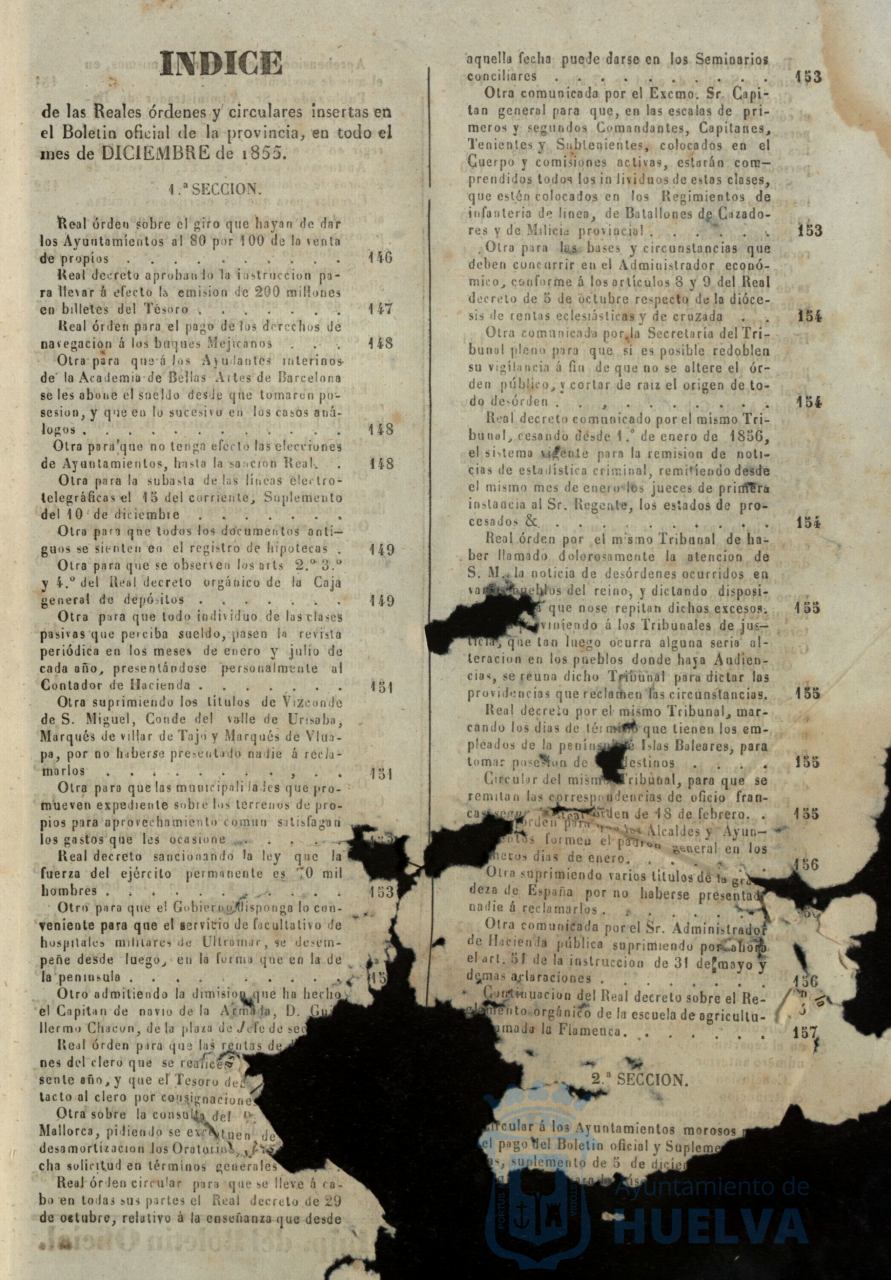 INDICE
de las Reales órdenes y circulares insertas en
el Boletin oficial de la provincia, en todo el
mes de DICIEMBRE de 1855.
1.ª SECCION.
Real órden sobre el giro que hayan de dar
los Ayuntamientos al 80 por 100 de la venta
de propios . . . . . . . . . . 146
Real decreto aprobando la instruccion pa-
ra llevar á efecto la emision de 200 millones
en billetes del Tesoro . . . . . . . 147
Real órden para el pago de los derechos de
navegacion á los buques Mejicanos . . . 148
Otra para que á los Ayudantes interinos
de la Academia de Bellas Artes de Barcelona
se les abone el sueldo desde que tomaron po-
sesion, y que en lo sucesivo en los casos aná-
logos . . . . . . . . . . . . 148
Otra para que no tenga efecto las elecciones
de Ayuntamientos, hasta la sancion Real. . 148
Otra para la subasta de las líneas electro-
telegráficas el 15 del corriente, Suplemento
del 10 de diciembre . . . . . . .
Otra para que todos los documentos anti-
guos se sienten en el registro de hipotecas . 149
Otra para que se observen los arts 2.º 3.º
y 4.º del Real decreto orgánico de la Caja
general de depósitos . . . . . . . 149
Otra para que todo individuo de las clases
pasivas que perciba sueldo, pasen la revista
periódica en los meses de enero y julio de
cada año, presentándose personalmente al
Contador de Hacienda . . . . . . . 151
Otra suprimiendo los titulos de Vizconde
de S. Miguel, Conde del valle de Urisaba,
Marqués de villar de Tajo y Marqués de Vlua-
pa, por no haberse presentado nadie á recla-
marlos . . . . . . . . . . . 151
Otra para que las municipalidades que pro-
mueven expediente sobre los terrenos de pro-
pios para aprovechamiento comun satisfagan
los gastos que les ocasione . . . . .
Real decreto sancionando la ley que la
fuerza del ejército permanente es 70 mil
hombres . . . . . . . . . . . 153
Otro para que el Gobierno disponga lo con-
veniente para que el servicio de facultativo de
hospitales militares de Ultramar, se desem-
peñe desde luego, en la forma que en la de
la península . . . . . . . . . . 15
Otro admitiendo la dimision que ha hecho
el Capitan de navio de la Armada, D. Gui
llermo Chacon, de la plaza de Jefe de sec
Real órden para que las rentas de
nes del clero que se realices
sente año, y que el Tesoro de
tacto al clero por consignacione
Otra sobre la consulta del
Mallorca, pidiendo se exceptuen de
desamortizacion los Oratorios,
cha solicitud en términos generales
Real órden circular para que se lleve á ca-
bo en todas sus partes el Real decreto de 29
de octubre, relativo á la enseñanza que desde
aquella fecha puede darse en los Seminarios
conciliares . . . . . . . . . . 153
Otra comunicada por el Excmo. Sr. Capi-
tan general para que, en las escalas de pri-
meros y segundos Comandantes, Capitanes,
Tenientes y Subtenientes, colocados en el
Cuerpo y comisiones activas, estarán com-
prendidos todos los individuos de estas clases,
que estén colocados en los Regimientos de
infanteria de linea, de Batallones de Cazado-
res y de Milicia provincial . . . . . . 153
Otra para las bases y circunstancias que
deben concurrir en el Administrador econó-
mico, conforme á los artículos 8 y 9 del Real
decreto de 5 de octubre respecto de la dióce-
sis de rentas eclesiásticas y de cruzada . . 154
Otra comunicada por la Secretaría del Tri-
bunal pleno para que si es posible redoblen
su vigilancia á fin de que no se altere el ór-
den público, y cortar de raiz el origen de to-
do desórden . . . . . . . . . . 154
Real decreto comunicado por el mismo Tri-
bunal, cesando desde 1.º de enero de 1856,
el sistema vigente para la remision de noti-
cias de estadística criminal, remitiendo desde
el mismo mes de enero los jueces de primera
instancia al Sr. Regente, los estados de pro-
cesados & . . . . . . . . . . 154
Real órden por el mismo Tribunal de ha-
ber llamado dolorosamente la atencion de
S. M. la noticia de desórdenes ocurridos en
varios pueblos del reino, y dictando disposi-
que nose repitan dichos excesos. 155
viniendo á los Tribunales de jus-
ticia, que tan luego ocurra alguna seria al-
teracion en los pueblos donde haya Audien-
cias, se reuna dicho Tribunal para dictar las
providencias que reclamen las circunstancias. 155
Real decreto por el mismo Tribunal, mar-
cando los dias de término que tienen los em-
pleados de la península é Islas Baleares, para
tomar posesion de destinos . . . . 155
Circular del mismo Tribunal, para que se
remitan las correspondencias de oficio fran-
cas segun Real órden de 18 de febrero. . 155
órden para los Alcaldes y Ayun-
formen el padron general en los
meros dias de enero. . . . . 156
Otra suprimiendo varios titulos de la gran
deza de España por no haberse presentado
nadie á reclamarlos . . . . . . .
Otra comunicada por el Sr. Administrador
de Hacienda pública suprimiendo por ahora
el art. 51 de la instruccion de 31 de mayo y
demas aclaraciones . . . . . . . 156
Continuacion del Real decreto sobre el Re-
glamento orgánico de la escuela de agricultu-
amada la Flamenca. . . . . . . 157
2.ª SECCION.
Circular á los Ayuntamientos morosos
el pago del Boletin oficial y Supleme
suplemento de 5 de dicie
Ayuntamiento de
HUELVA